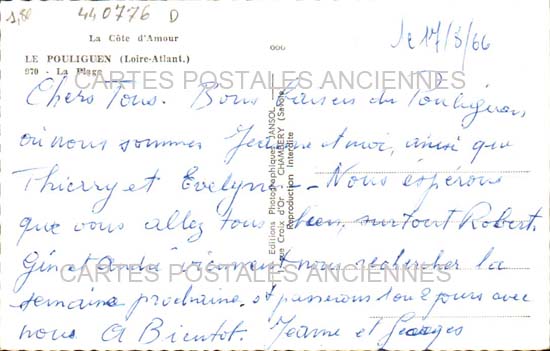 1,80 440776 D
La Côte d'Amour
LE POULIGUEN (Loire-Atlant.)
970 - La Plage
le 17/8/66
CARTES POSTALES ANCIENNES
Chers Tous. Bons baisers du Pouliguen,
où nous sommes Jeanne et moi, ainsi que
Thierry et Evelyne - Nous espérons
que vous allez tous bien, surtout Robert.
Gin et viennent nous rechercher la
semaine prochaine, et passerons 1 ou 2 jours avec
nous. A Bientôt. Jeanne et Georges
CARTES POSTALES ANCIENNES
CARTES POSTALES ANCIENNES
Editions Photographiques JANSOL
Rue Croix d'Or - CHAMBÉRY (Savoie)
Reproduction Interdite